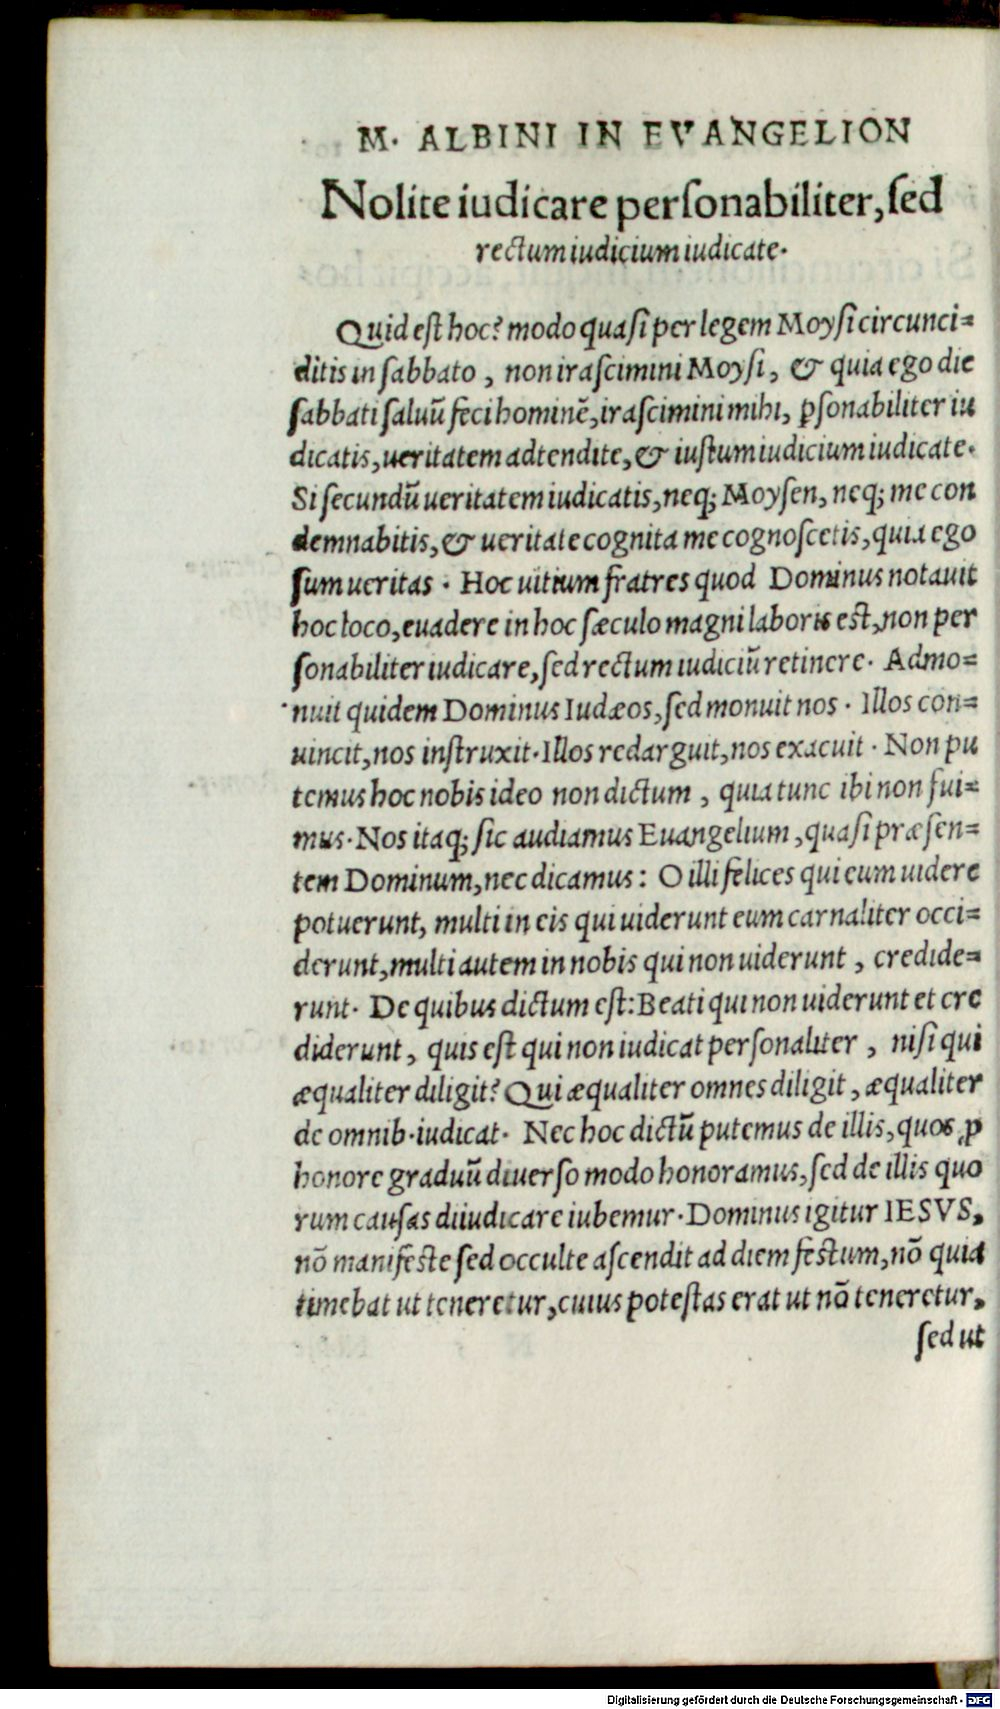 M. ALBINI IN EVANGELION
Nolite iudicare perſonabiliter, ſed
rectum iudicium iudicate.
Quid eſt hoc? modo quaſi per legem Moyſi circunci=
ditis in ſabbato, non iraſcimini Moyſi, & quia ego die
ſabbati ſaluū feci hominē, iraſcimini mihi, ꝑſonabiliter iu
dicatis, ueritatem adtendite, & iuſtum iudicium iudicate.
Si ſecundū ueritatem iudicatis, neq; Moyſen, neq; me con
demnabitis, & ueritate cognita me cognoſcetis, quia ego
ſum ueritas. Hoc uitium fratres quod Dominus notauit
hoc loco, euadere in hoc ſæculo magni laboris eſt, non per
ſonabiliter iudicare, ſed rectum iudiciū retinere. Admo=
nuit quidem Dominus Iudæos, ſed monuit nos. Illos con=
uincit, nos inſtruxit. Illos redarguit, nos exacuit. Non pu
temus hoc nobis ideo non dictum, quia tunc ibi non fui=
mus. Nos itaq; ſic audiamus Euangelium, quaſi præſen=
tem Dominum, nec dicamus: O illi felices qui eum uidere
potuerunt, multi in eis qui uiderunt eum carnaliter occi=
derunt, multi autem in nobis qui non uiderunt, credide=
runt. De quibus dictum eſt: Beati qui non uiderunt et cre
diderunt, quis eſt qui non iudicat perſonaliter, niſi qui
æqualiter diligit? Qui æqualiter omnes diligit, æqualiter
de omnib. iudicat. Nec hoc dictū putemus de illis, quos ꝓ
honore graduū diuerſo modo honoramus, ſed de illis quo
rum cauſas diiudicare iubemur. Dominus igitur IESVS,
nō manifeſte ſed occulte aſcendit ad diem feſtum, nō quia
timebat ut teneretur, cuius poteſtas erat ut nō teneretur,
ſed ut
Digitalisierung gefördert durch die Deutsche Forschungsgemeinschaft - DFG